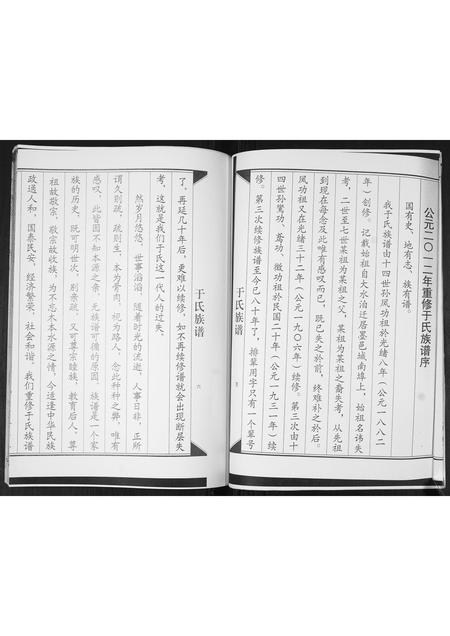 公元二〇一二年重修于氏族谱序
国有史、地有志、族有谱。
我于氏族谱由十四世孙凤功祖於光绪八年（公元一八八二
年）创修。记载始祖自大水泊迁居墨邑城南埠上，始祖名讳失
考，二世至七世某祖为某祖之父，某祖为某祖之裔失考，从先祖
到现在每念及此唯有感叹而已，既已失之於前，终难补之於后。
凤功祖又在光绪三十二年（公元一九〇六年）续修。第三次由十
四世孙鸞功、鸢功、微功祖於民国二十年（公元一九三一年）续
修。第三次续修族谱至今已八十年了，排辈用字只有一个辈号
于氏族谱
于氏族谱
六
了，再延几十年后，更难以续修，如不再续修谱就会出现断层失
考，这就是我们于氏这一代人的过失。
然岁月悠悠，世事滔滔，随着时光的流逝，人事日非，正所
谓久则疏，疏则生，本为骨肉，视为路人，念此种种之弊，唯有
感叹，此皆因不知本源之亲，无族谱可循的原因，族谱是一个家
族的历史，既可明世次，别亲疏，又可尊宗睦族，教育后人，尊
祖故敬宗，敬宗故收族，为不忘木本水源之情，今适逢中华民族
政通人和，国泰民安，经济繁荣，社会和谐，我们重修于氏族谱